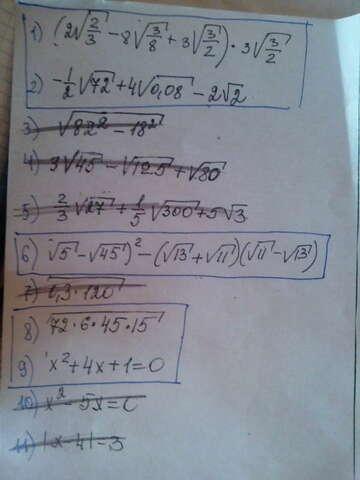 1) (2√(2/3) - 8√(3/8) + 3√(3/2)) · 3√(3/2)
2) -1/2√72 + 4√0,08 - 2√2
3) √(82² - 18²)
4) 3√45 - √125 + √80
5) 2/3√27 + 1/5√300 + 5√3
6) √5 - √45)² - (√13 + √11)(√11 - √13)
7) √(1,3 · 120)
8) √(72 · 6 · 45 · 15)
9) x² + 4x + 1 = 0
10) x² - 5x = 0
11) |x - 4| = 3